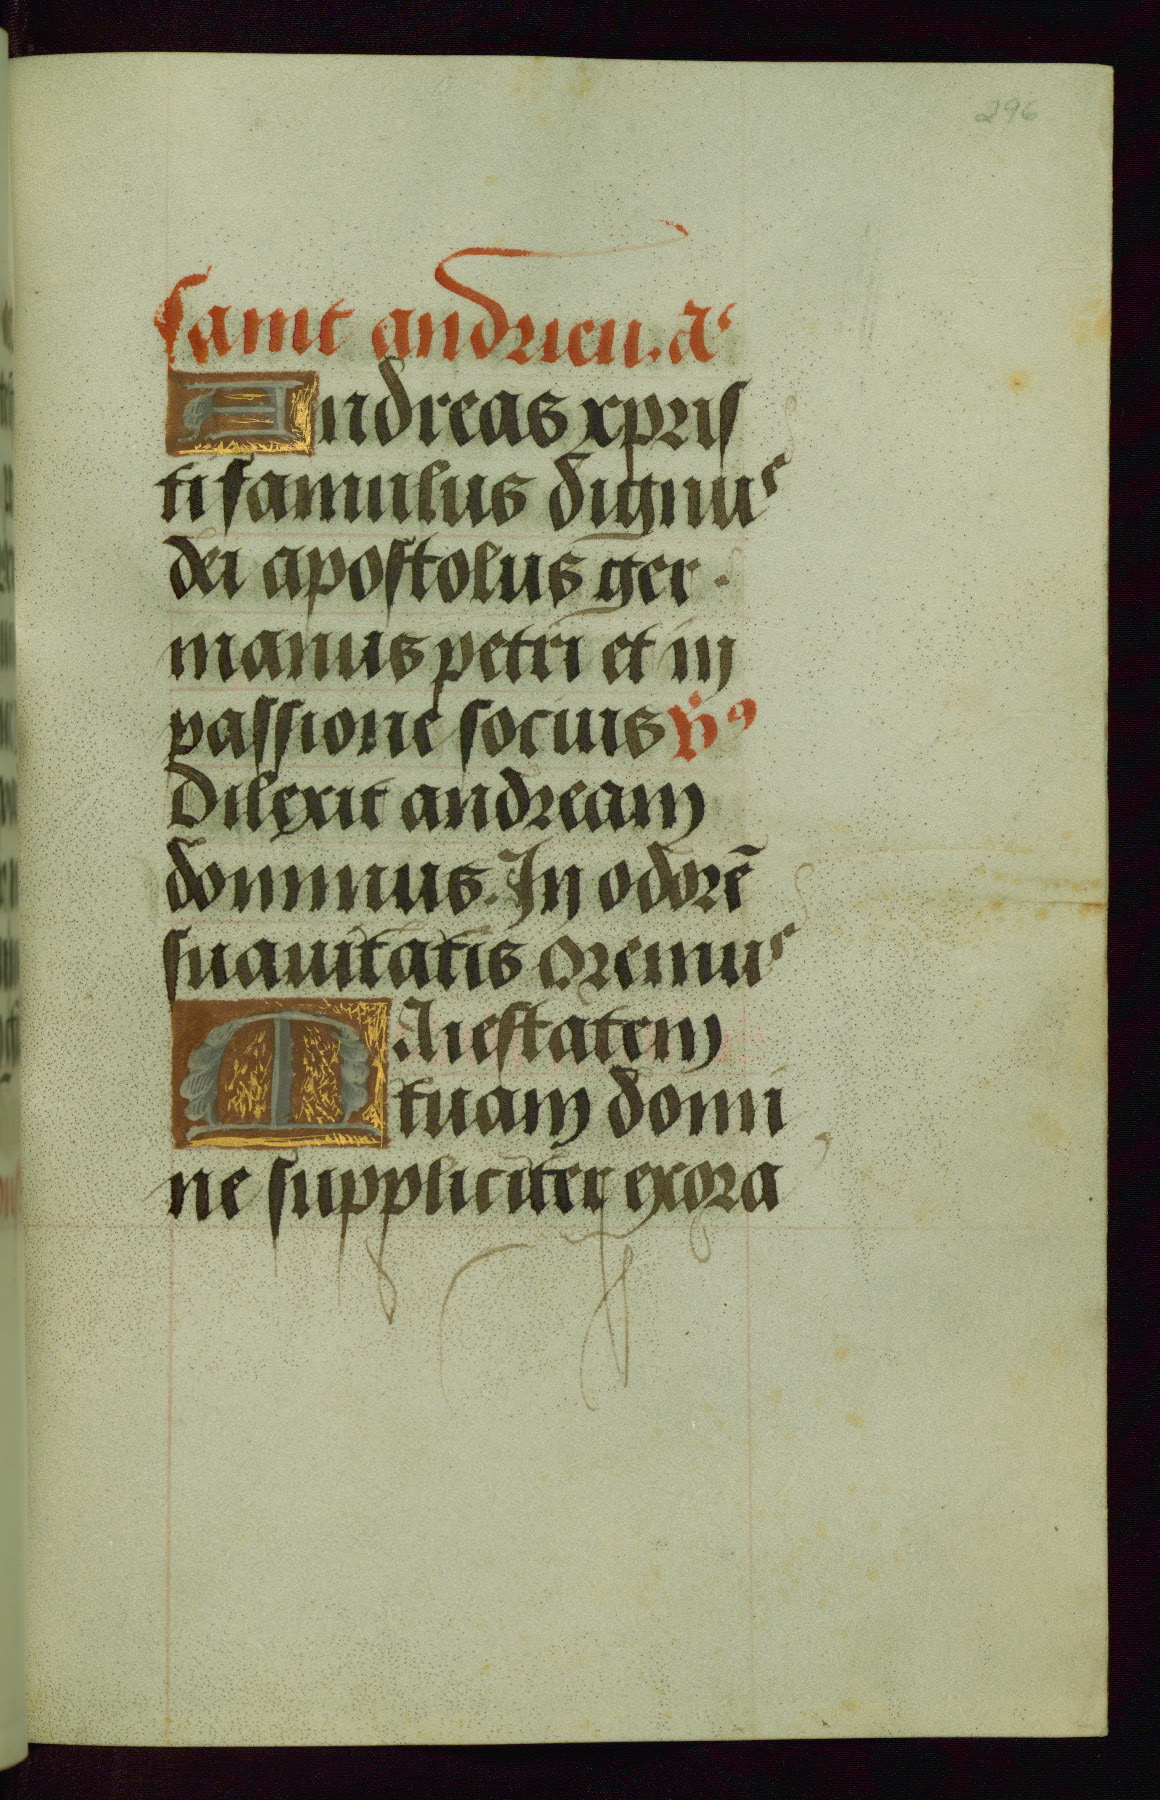 296
saint andrieu. a͛
Andreas xpris
ti famulus dignus
dei apostolus ger-
manus petri et in
passione socius v̓ꝰ
Dilexit andream
dominus. In odorē
suauitatis Oremus
Maiestatem
tuam domi
ne suppliciter exora